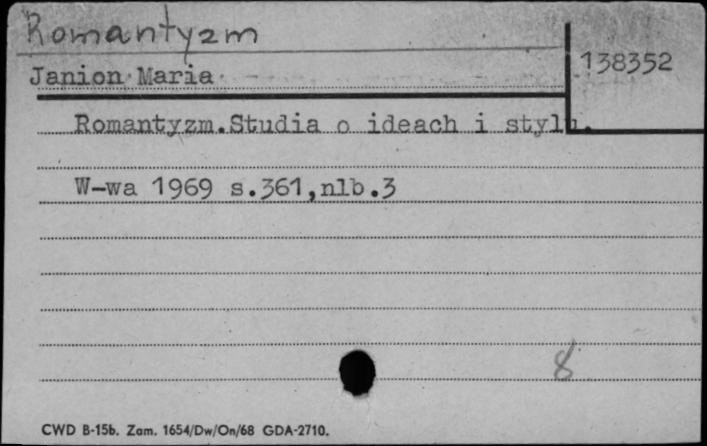 Romantyzm
138352
Janion Maria
Romantyzm.Studia o ideach i stylu.
W-wa 1969 s.361,nlb.3
8
CWD B-15b. Zam. 1654/Dw/On/68 GDA-2710.